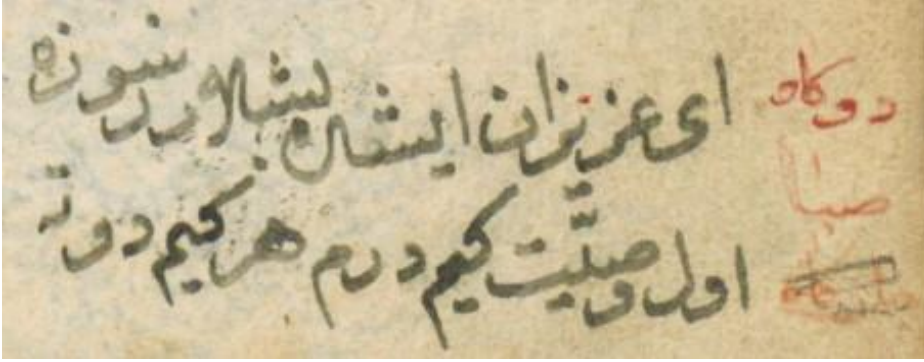 دوكاه
صبا
ای عزیزان ایشته باشلارز سوزه
اول وصیّت كیم درم هر كیم دوته